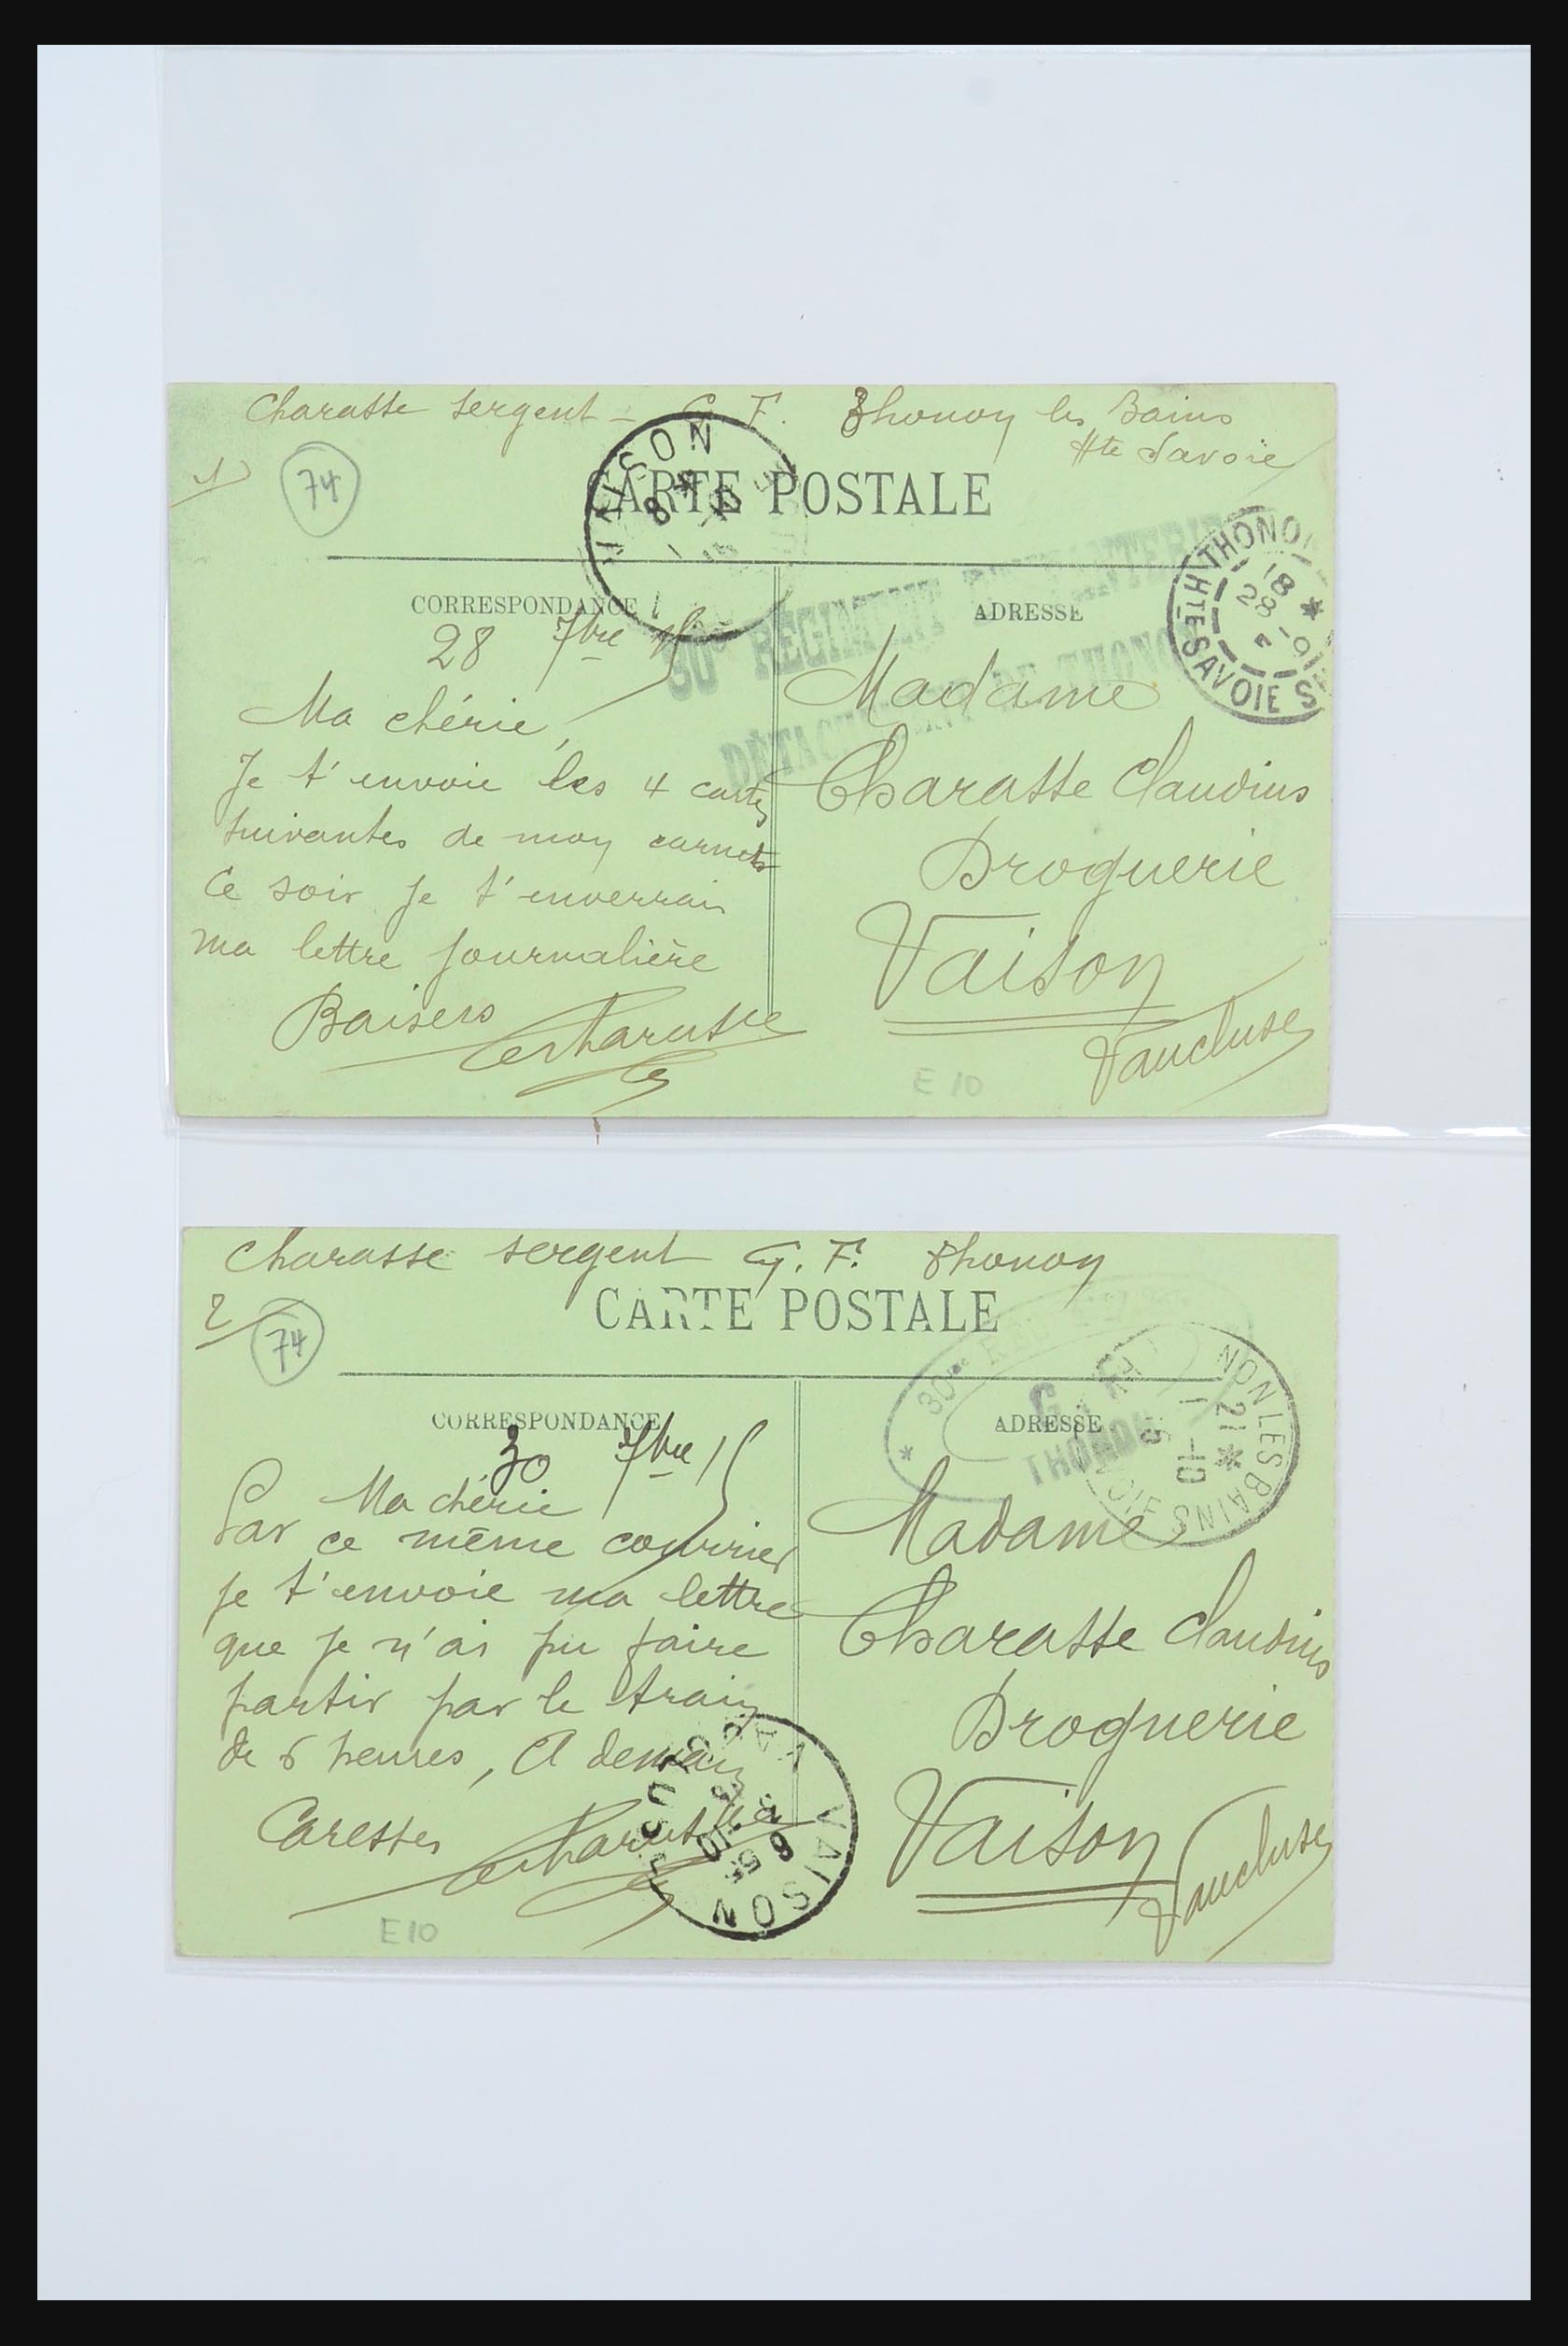 Charasse sergent - G. F. Thonon les Bains
Hte Savoie
1
74
CARTE POSTALE
VAISON
8
30e RÉGIMENT D'INFANTERIE
DÉTACHEMENT DE THONON
THONON
18 *
28 -9
HTE SAVOIE
CORRESPONDANCE
ADRESSE
28 7bre 15
Ma chérie,
Je t'envoie les 4 cartes
suivantes de mon carnet
Ce soir je t'enverrai
ma lettre journalière
Baisers Charasse
Madame
Charasse Claudius
Droguerie
Vaison
Vaucluse
E 10
Charasse sergent G. F. Thonon
2
74
CARTE POSTALE
30me
G. F.
THONON
NON LES BAINS
21 *
1 -10
OIE
CORRESPONDANCE
ADRESSE
30 7bre 15
Ma chérie
Par ce même courrier
je t'envoie ma lettre
que je n'ai pu faire
partir par le train
de 6 heures, A demain
Caresses Charasse
Madame
Charasse Claudius
Droguerie
Vaison
Vaucluse
VAISON
E10